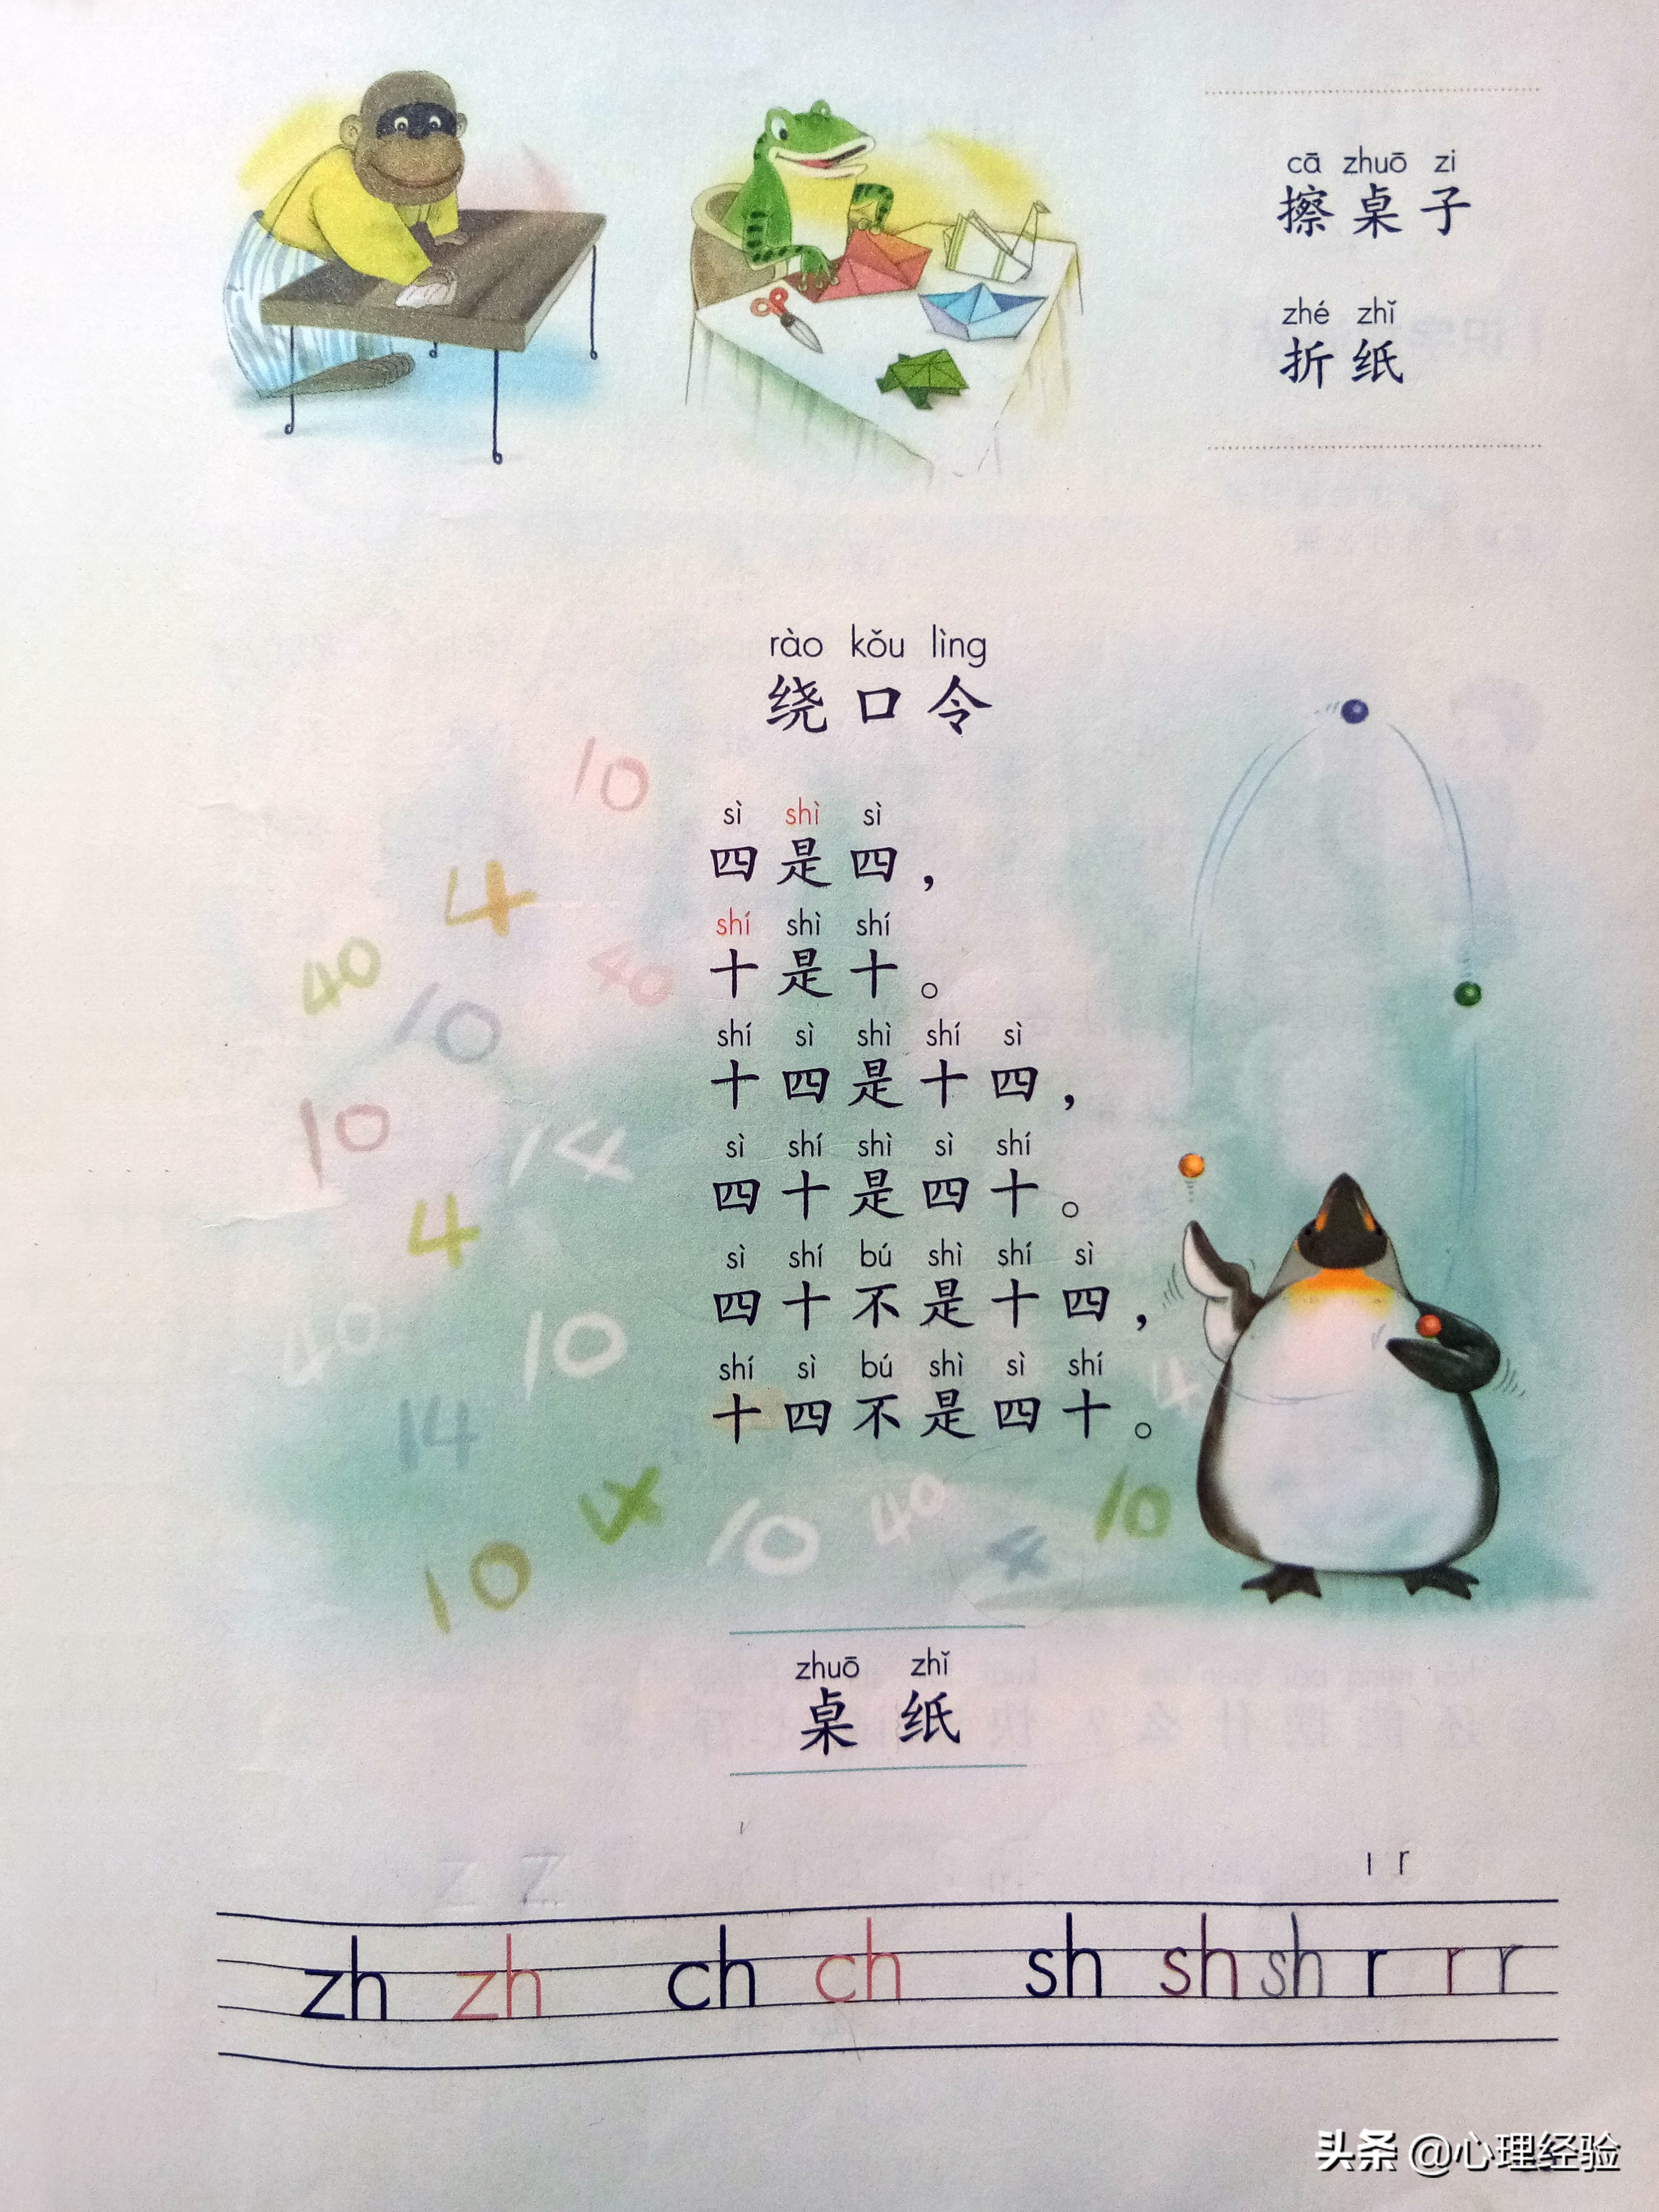 cā zhuō zi
擦桌子
zhé zhǐ
折纸
rào kǒu lìng
绕口令
sì shì sì
四是四，
shí shì shí
十是十。
shí sì shì shí sì
十四是十四，
sì shí shì sì shí
四十是四十。
sì shí bú shì shí sì
四十不是十四，
shí sì bú shì sì shí
十四不是四十。
10
4
40
40
10
10
14
4
40
10
14
4
4
10
40
10
4
10
zhuō zhǐ
桌纸
z z
ı r
zh zh ch ch sh sh sh r r r
头条 @心理经验